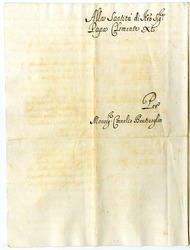 Alla Santità di Nro Sigre
Papa Clemente XI.
Per
Monsigr Cornelio Bentivoglio